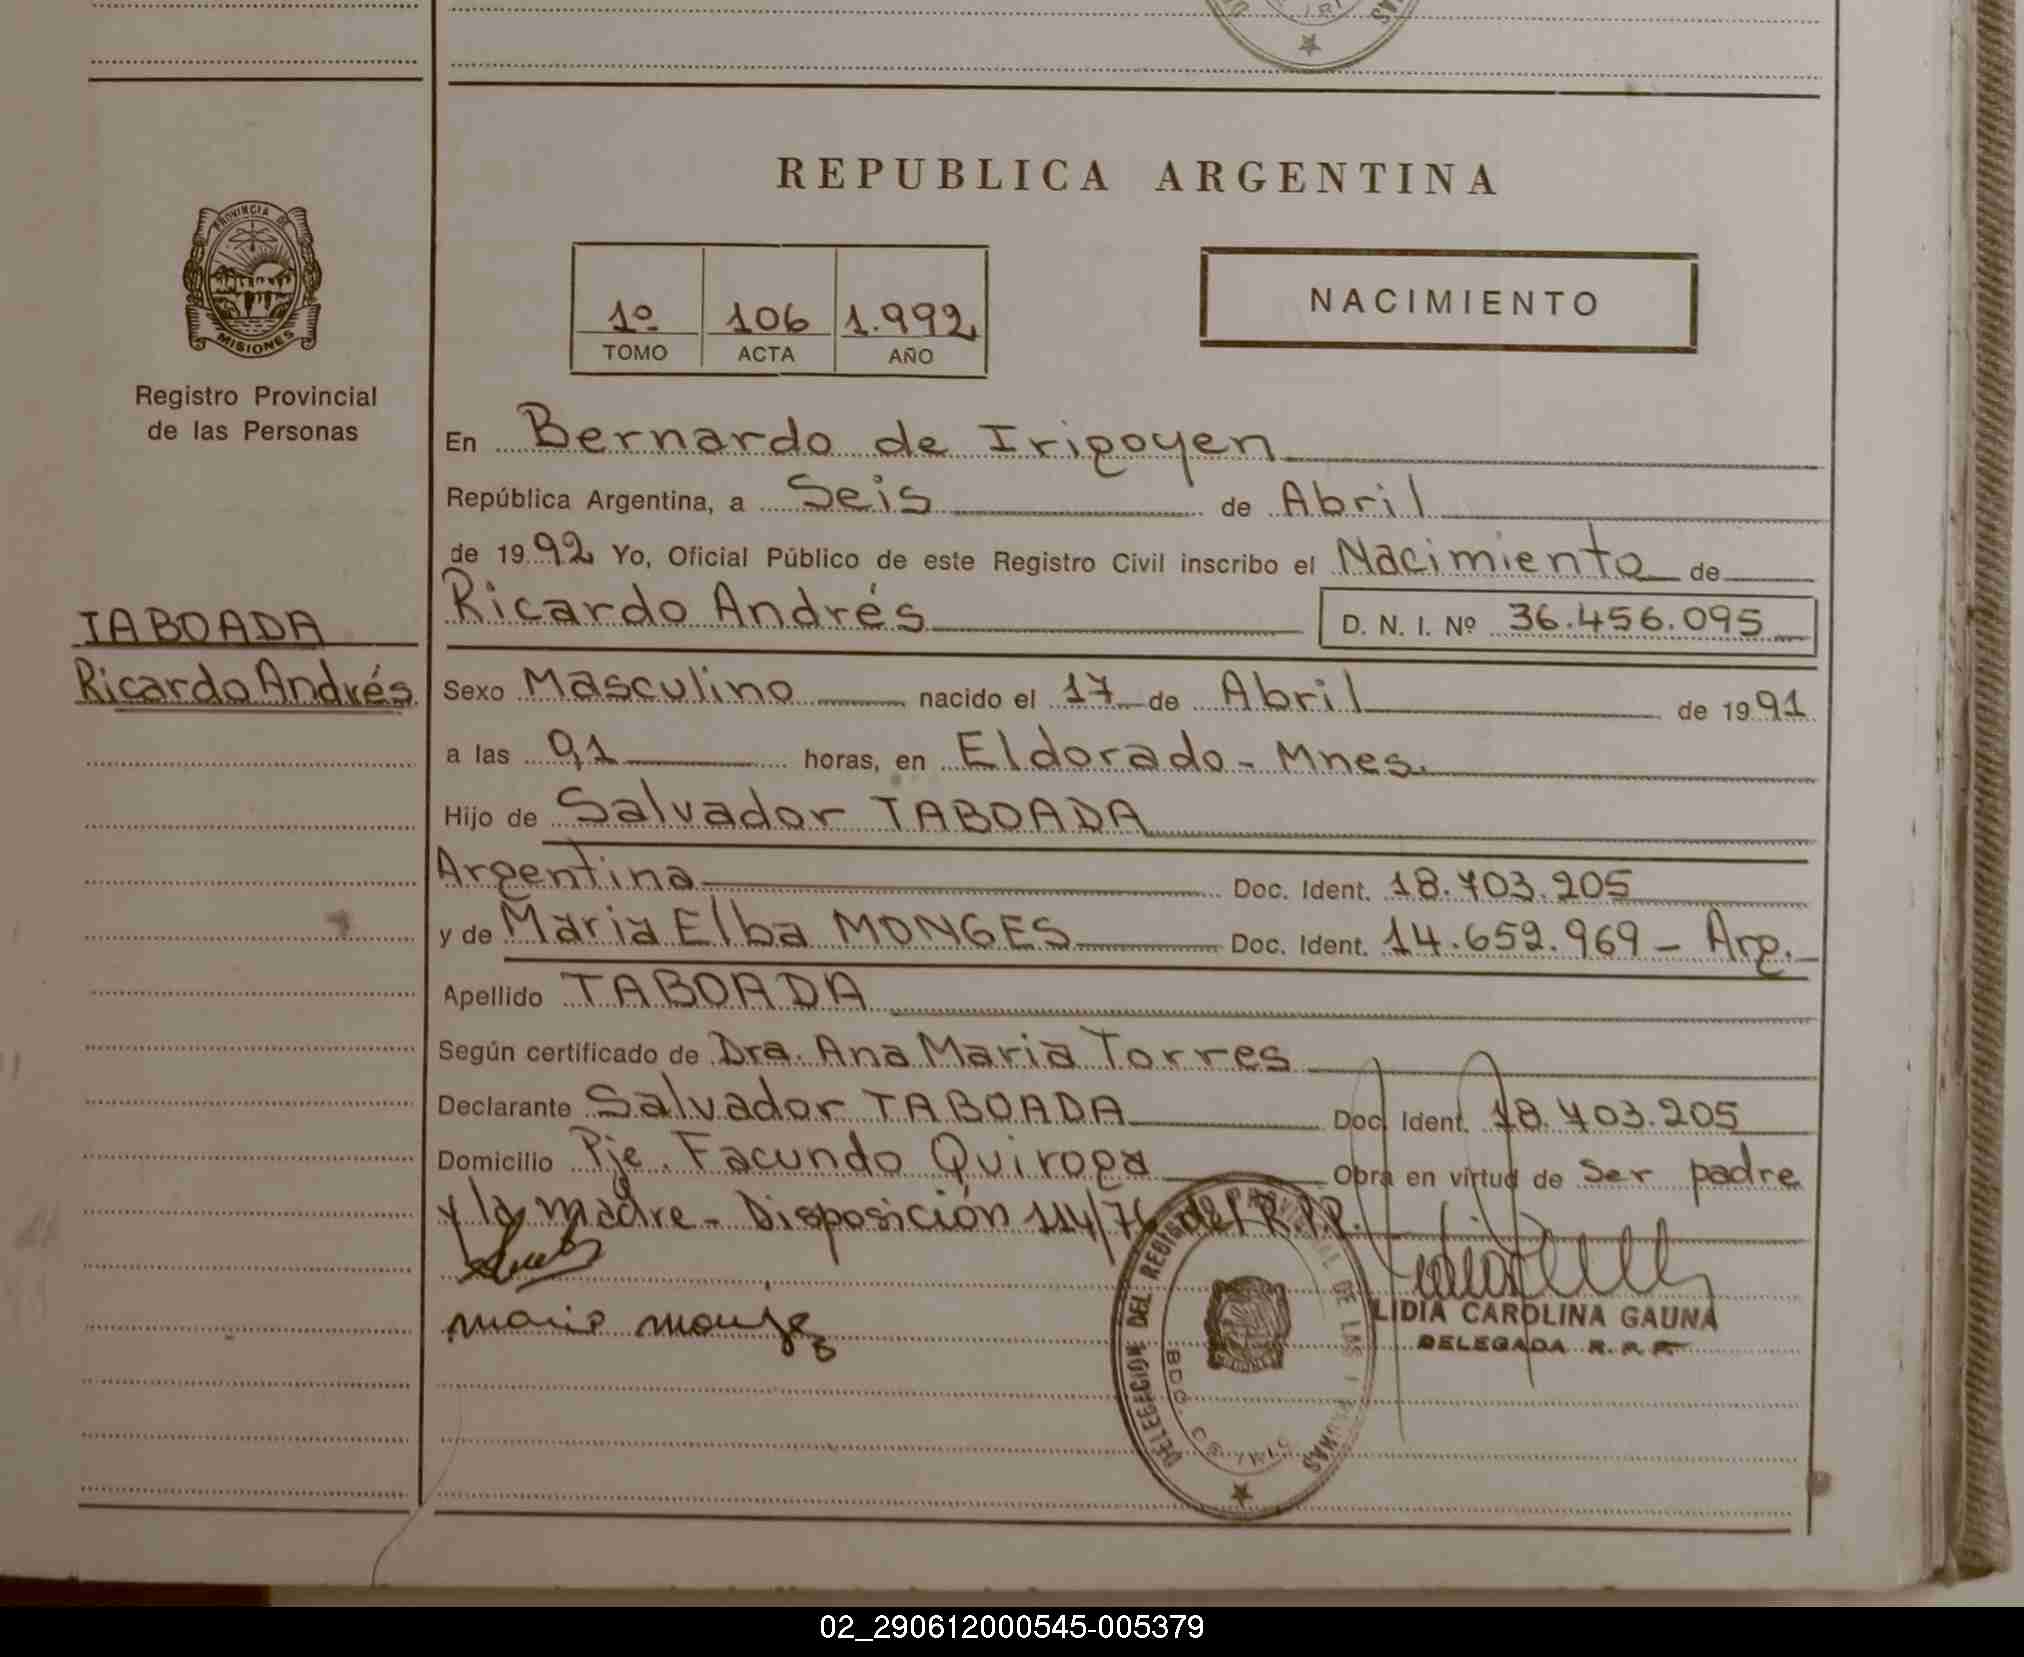 REPUBLICA ARGENTINA
PROVINCIA DE
MISIONES
Registro Provincial
de las Personas
1º 106 1.992
TOMO ACTA AÑO
NACIMIENTO
En Bernardo de Irigoyen
República Argentina, a Seis de Abril
de 1992 Yo, Oficial Público de este Registro Civil inscribo el Nacimiento de
TABOADA
Ricardo Andrés
Ricardo Andrés D. N. I. Nº 36.456.095
Sexo Masculino nacido el 17 de Abril de 1991
a las 01 horas, en Eldorado - Mnes.
Hijo de Salvador TABOADA
Argentina Doc. Ident. 18.703.205
y de Maria Elba MONGES Doc. Ident. 14.652.969 - Arg.
Apellido TABOADA
Según certificado de Dra. Ana Maria Torres
Declarante Salvador TABOADA Doc. Ident. 18.703.205
Domicilio Pje. Facundo Quiroga Obra en virtud de ser padre
y la madre - Disposición 114/76 del R.P.P.
DELEGACION DEL REGISTRO PROVINCIAL DE LAS PERSONAS
LIDIA CAROLINA GAUNA
DELEGADA R. P. P.
02_290612000545-005379